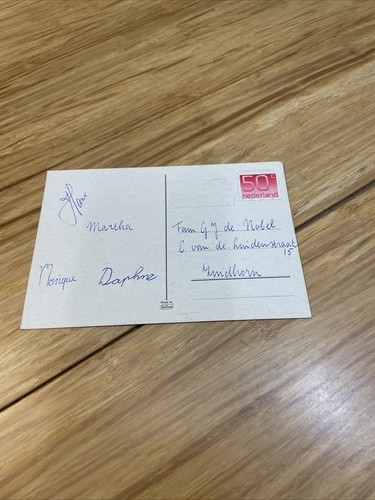 Martha
Monique Daphne
50c
nederland
Fam G.J. de Nobel
C. van de Lindenstraat
15